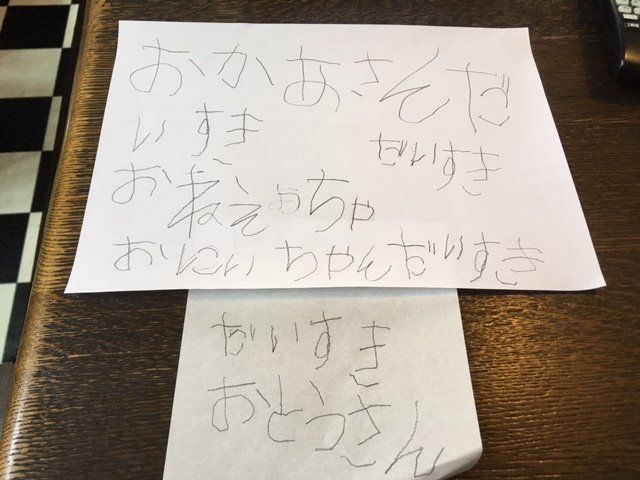 おかあさんだ
いすき
だいすき
おねえちゃ
おにいちゃんだいすき
だいすき
おとうさん